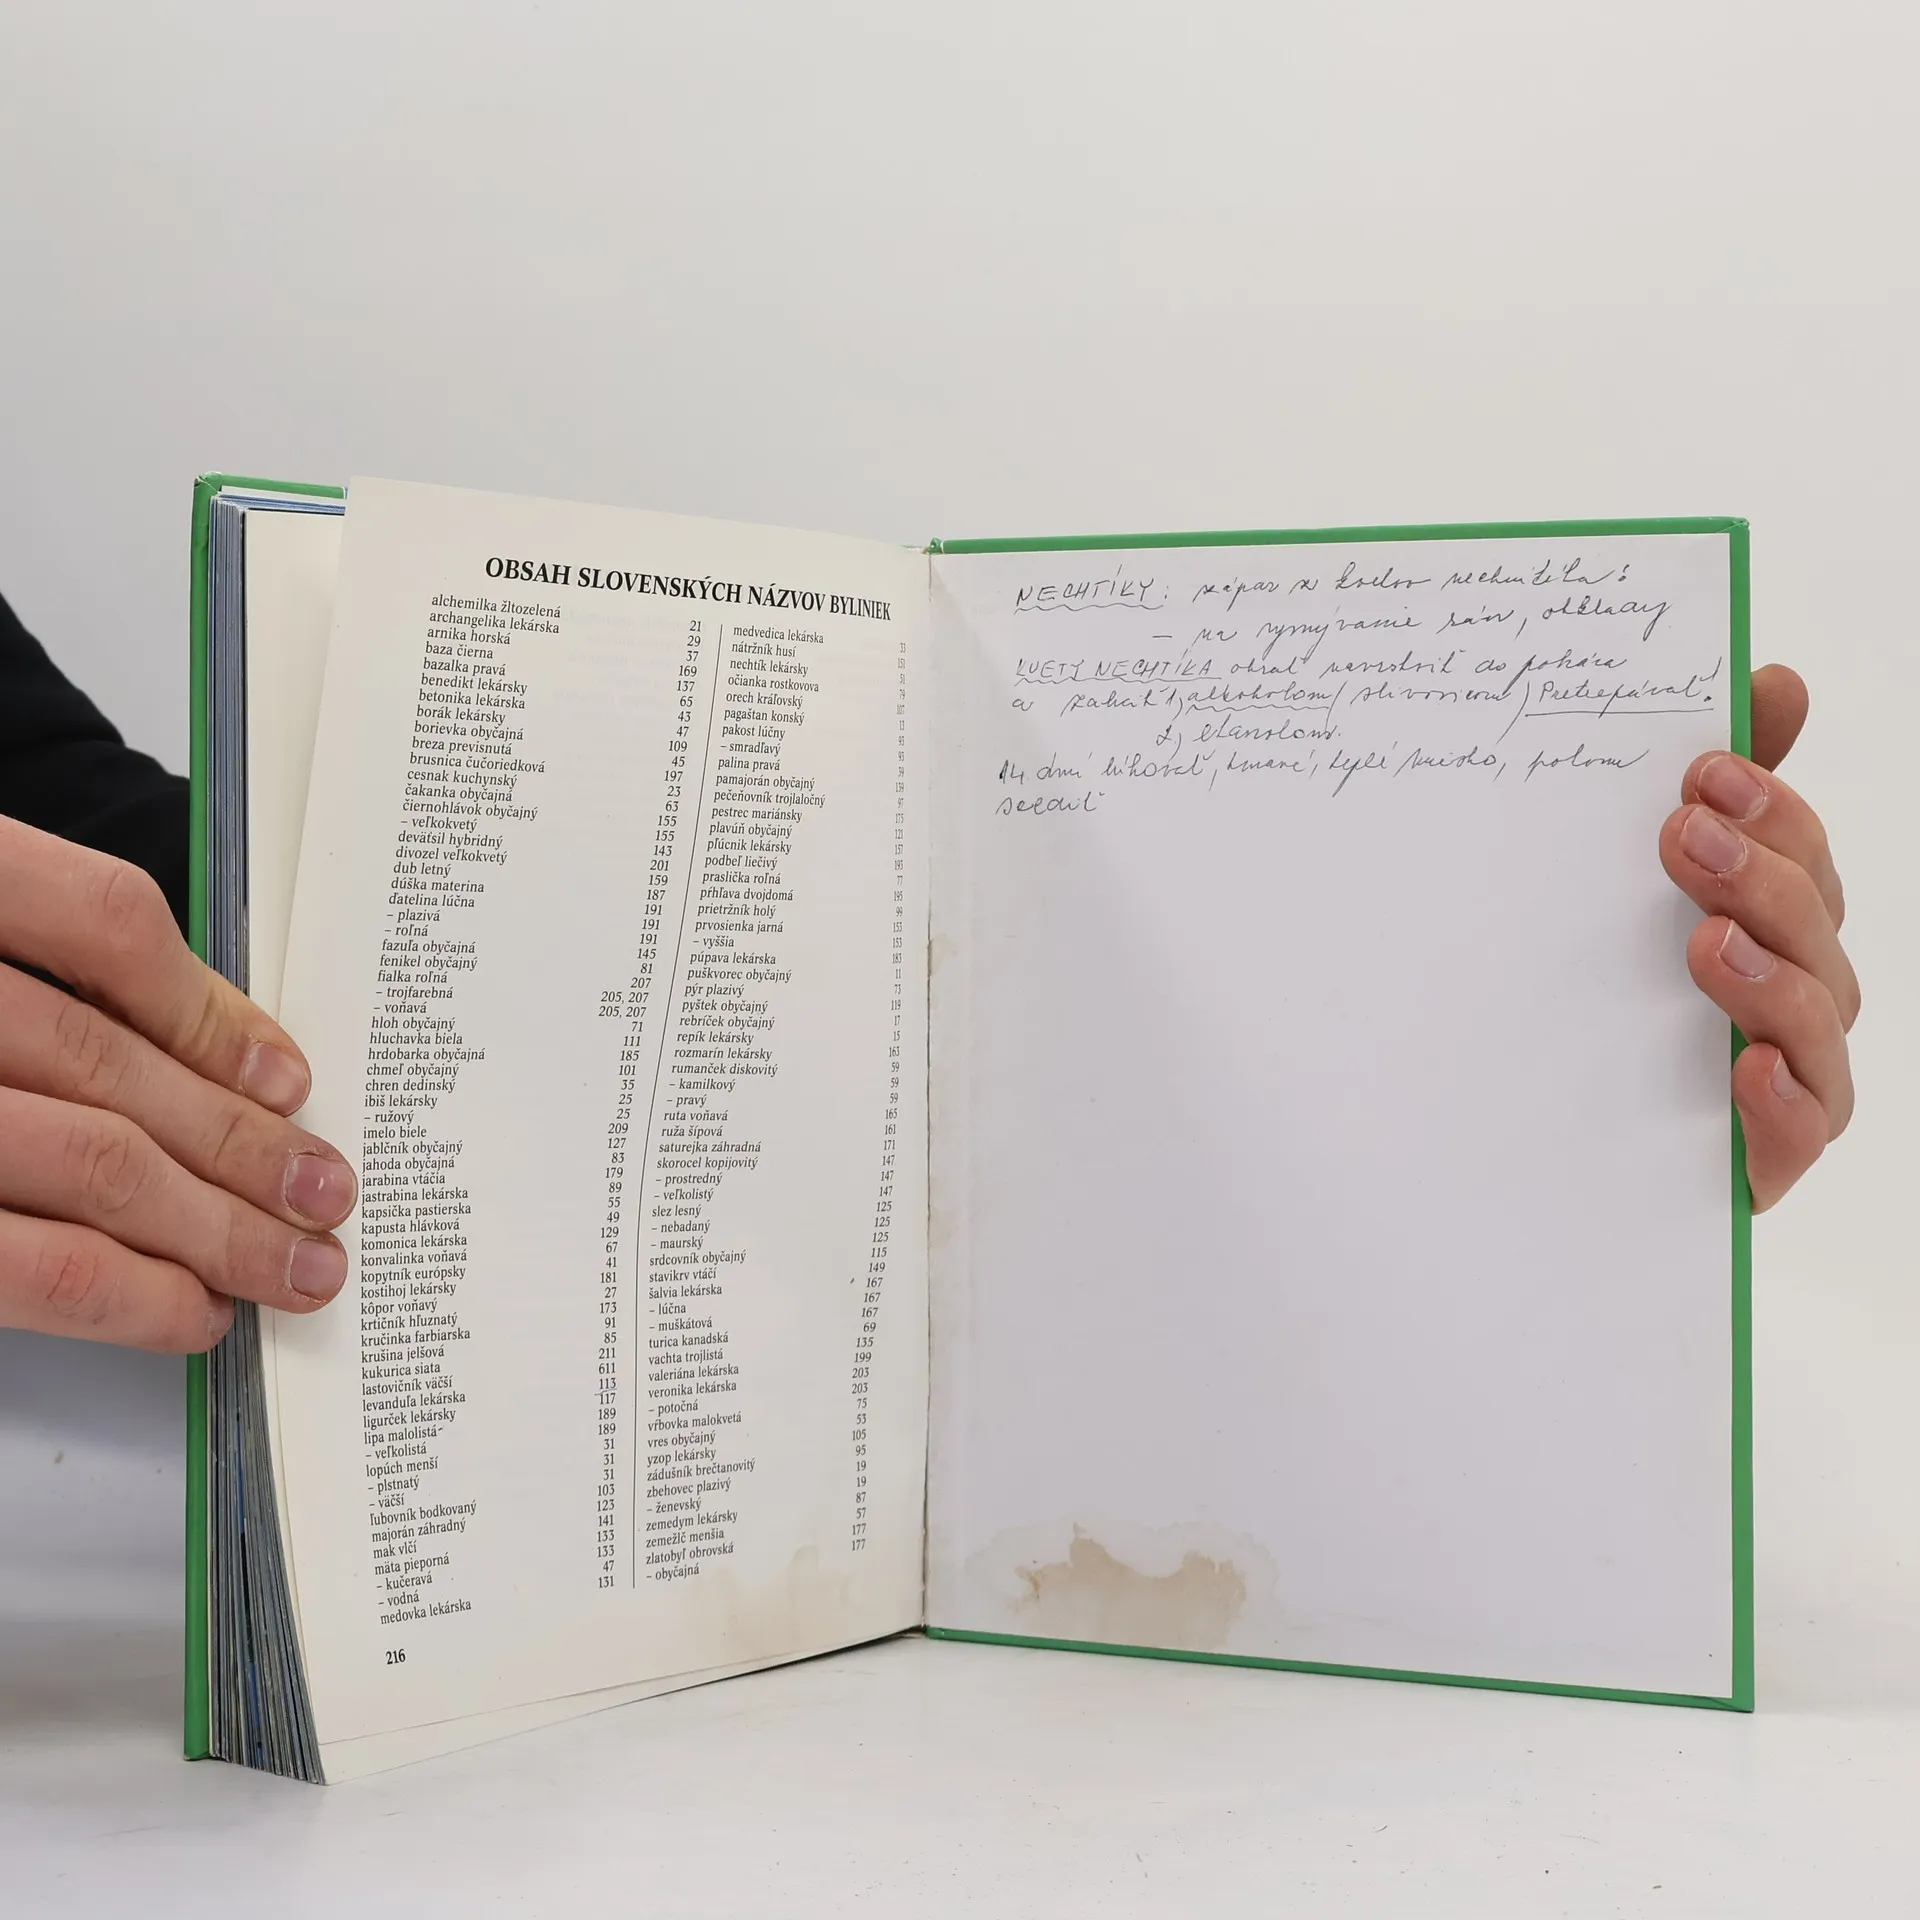 OBSAH SLOVENSKÝCH NÁZVOV BYLINIEK
alchemilka žltozelená 21
archangelika lekárska 29
arnika horská 37
baza čierna 169
bazalka pravá 137
benedikt lekársky 65
betonika lekárska 43
borák lekársky 47
borievka obyčajná 109
breza previsnutá 45
brusnica čučoriedková 197
cesnak kuchynský 23
čakanka obyčajná 63
čiernohlávok obyčajný 155
– veľkokvetý 155
deväťsil hybridný 143
divozel veľkokvetý 201
dub letný 159
dúška materina 187
ďatelina lúčna 191
– plazivá 191
– roľná 191
fazuľa obyčajná 145
fenikel obyčajný 81
fialka roľná 207
– trojfarebná 205, 207
– voňavá 205, 207
hloh obyčajný 71
hluchavka biela 111
hrdobarka obyčajná 185
chmeľ obyčajný 101
chren dedinský 35
ibiš lekársky 25
– ružový 25
imelo biele 209
jablčník obyčajný 127
jahoda obyčajná 83
jarabina vtáčia 179
jastrabina lekárska 89
kapsička pastierska 55
kapusta hlávková 49
komonica lekárska 129
konvalinka voňavá 67
kopytník európsky 41
kostihoj lekársky 181
kôpor voňavý 27
krtičník hľuznatý 173
kručinka farbiarska 91
krušina jelšová 85
kukurica siata 211
lastovičník väčší 611
levanduľa lekárska 113
ligurček lekársky 117
lipa malolistá 189
– veľkolistá 189
lopúch menší 31
– plstnatý 31
– väčší 31
ľubovník bodkovaný 103
majorán záhradný 123
mak vlčí 141
mäta pieporná 133
– kučeravá 133
– vodná 47
medovka lekárska 131
medvedica lekárska 33
nátržník husí 151
nechtík lekársky 51
očianka rostkovova 79
orech kráľovský 107
pagaštan konský 13
pakost lúčny 93
– smradľavý 93
palina pravá 39
pamajorán obyčajný 139
pečeňovník trojlaločný 97
pestrec mariánsky 175
plavúň obyčajný 121
pľúcnik lekársky 157
podbeľ liečivý 193
praslička roľná 77
pŕhľava dvojdomá 195
prietržník holý 99
prvosienka jarná 153
– vyššia 153
púpava lekárska 183
puškvorec obyčajný 11
pýr plazivý 73
pyštek obyčajný 119
rebríček obyčajný 17
repík lekársky 15
rozmarín lekársky 163
rumanček diskovitý 59
– kamilkový 59
– pravý 59
ruta voňavá 165
ruža šípová 161
saturejka záhradná 171
skorocel kopijovitý 147
– prostredný 147
– veľkolistý 147
slez lesný 125
– nebadaný 125
– maurský 125
srdcovník obyčajný 115
stavikrv vtáčí 149
šalvia lekárska 167
– lúčna 167
– muškátová 167
turica kanadská 69
vachta trojlistá 135
valeriána lekárska 199
veronika lekárska 203
– potočná 203
vŕbovka malokvetá 75
vres obyčajný 53
yzop lekársky 105
zádušník brečtanovitý 95
zbehovec plazivý 19
– ženevský 19
zemedym lekársky 87
zemežlč menšia 57
zlatobyľ obrovská 177
– obyčajná 177
216
NECHTÍKY: zápar z kvetov nechtíka:
– na vymývanie rán, obklady
KVETY NECHTÍKA obrať navrstviť do pohára
a zaliať 1, alkoholom (slivovicou) Pretrepávať!
2, etanolom.
14 dní lúhovať, tmavé, teplé miesto, potom
scediť